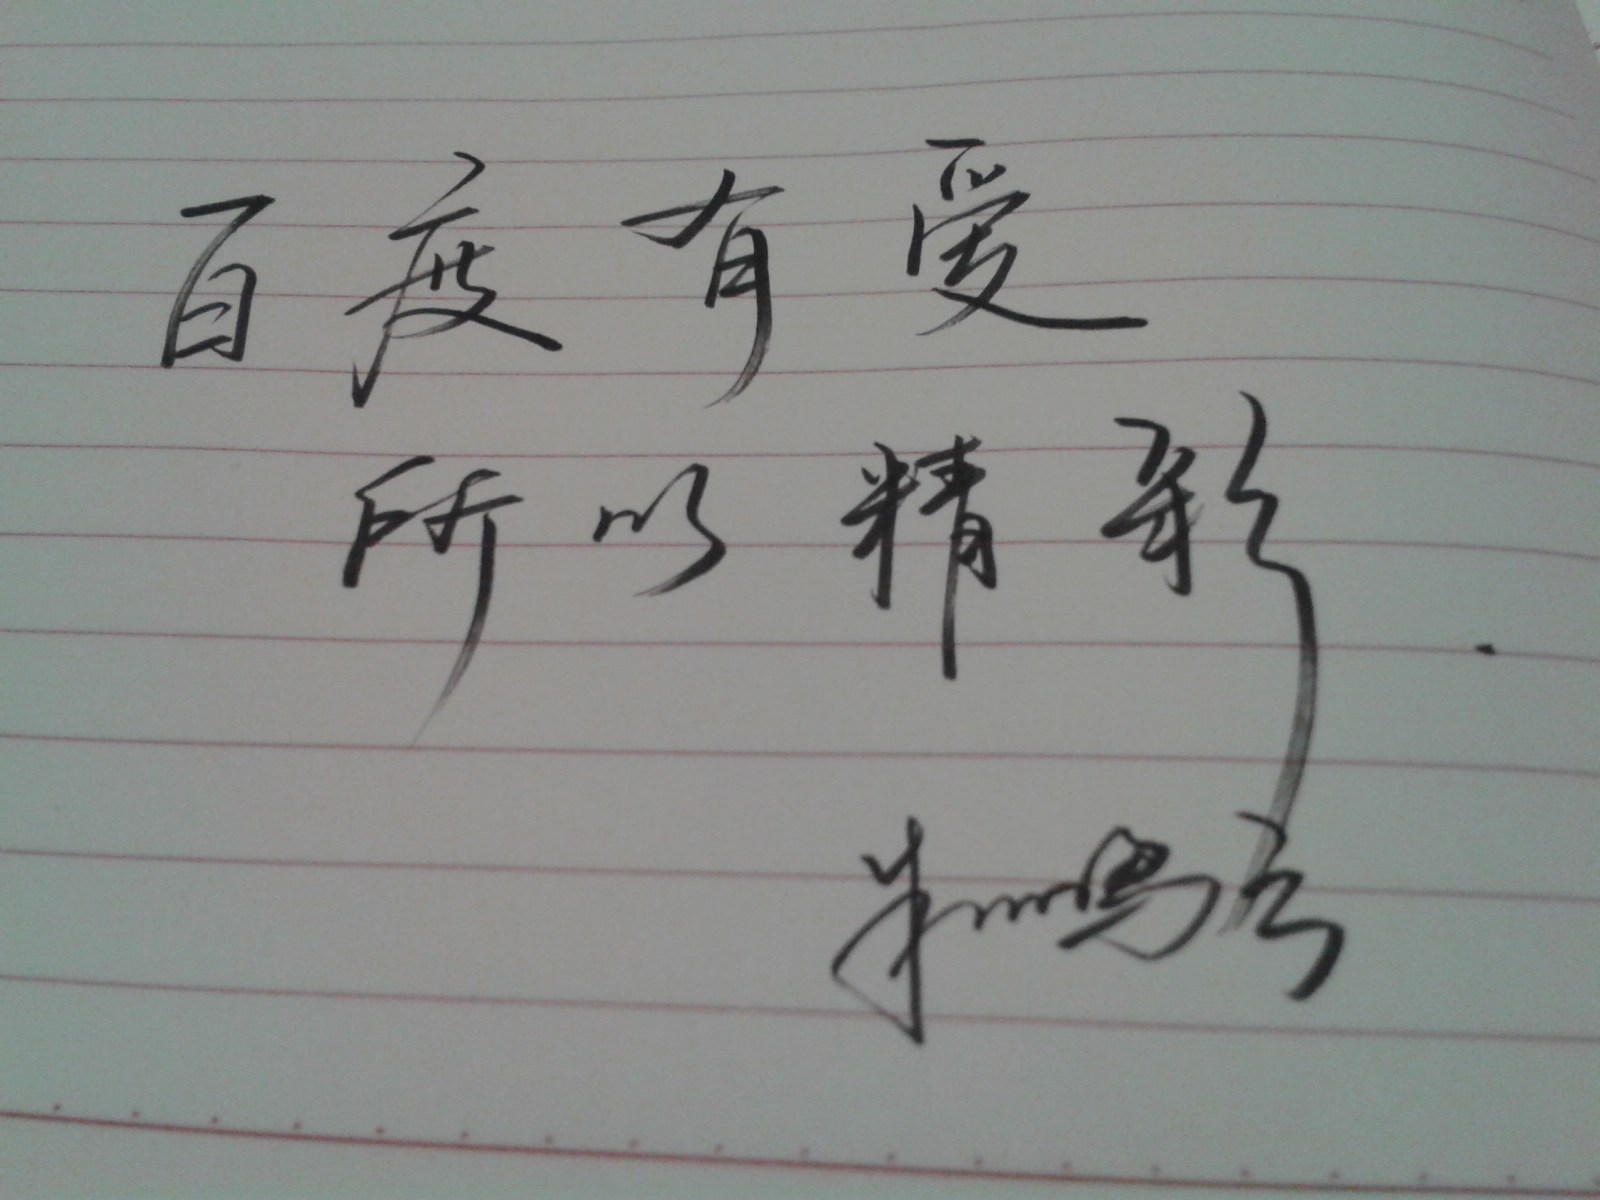 百度有爱
所以精彩